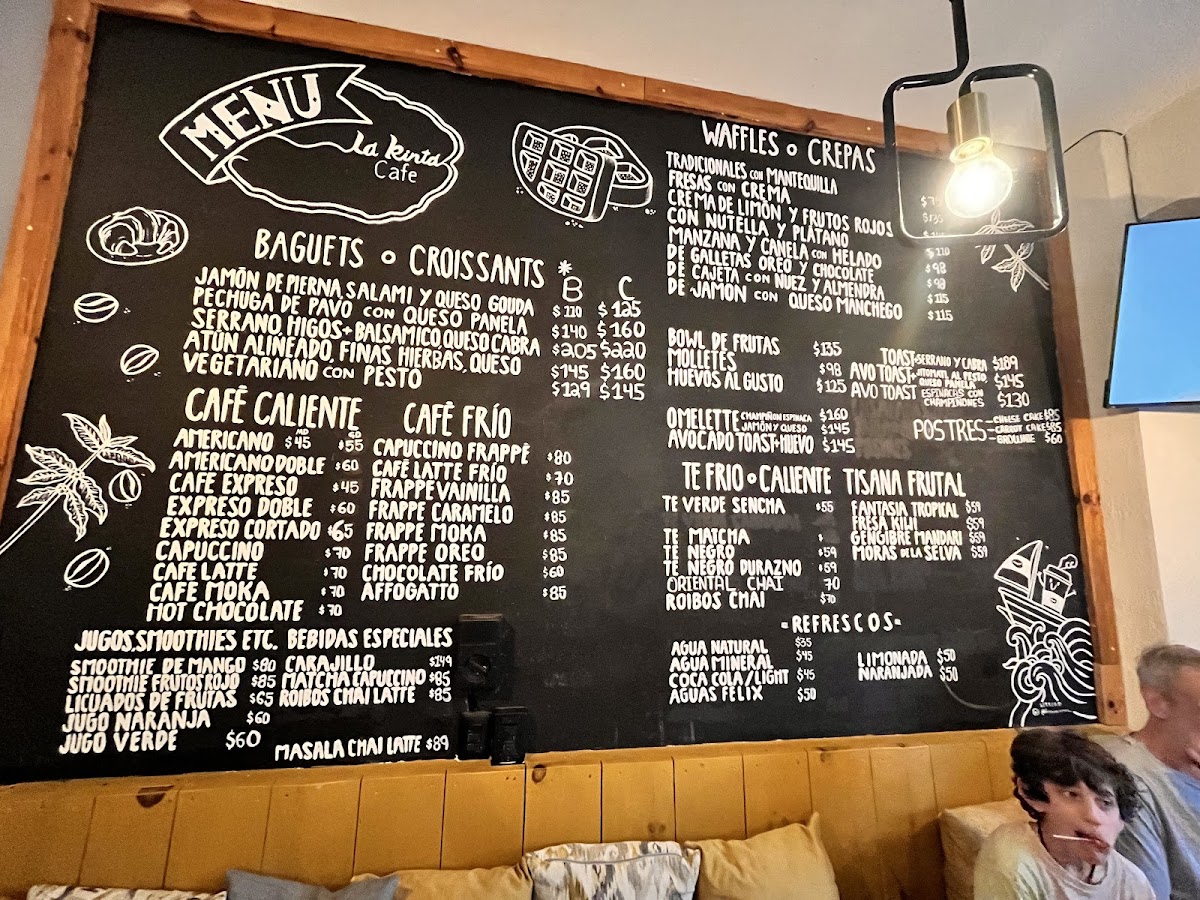 MENU
La Kinta
Cafe
BAGUETS o CROISSANTS *
B C
JAMÓN DE PIERNA, SALAMI Y QUESO GOUDA $110 $125
PECHUGA DE PAVO CON QUESO PANELA $140 $160
SERRANO, HIGOS + BALSAMICO, QUESO CABRA $205 $220
ATÚN ALINEADO, FINAS HIERBAS, QUESO $145 $160
VEGETARIANO CON PESTO $129 $145
CAFÉ CALIENTE
AMERICANO $45 $55
AMERICANO DOBLE $60
CAFÉ EXPRESO $45
EXPRESO DOBLE $60
EXPRESO CORTADO $65
CAPUCCINO $70
CAFE LATTE $70
CAFÉ MOKA $70
HOT CHOCOLATE $70
CAFÉ FRÍO
CAPUCCINO FRAPPÉ $80
CAFÉ LATTE FRÍO $70
FRAPPE VAINILLA $85
FRAPPÉ CARAMELO $85
FRAPPÉ MOKA $85
FRAPPÉ OREO $85
CHOCOLATE FRÍO $60
AFFOGATTO $85
JUGOS, SMOOTHIES ETC.
SMOOTHIE DE MANGO $80
SMOOTHIE FRUTOS ROJO $85
LICUADOS DE FRUTAS $65
JUGO NARANJA $60
JUGO VERDE $60
BEBIDAS ESPECIALES
CARAJILLO $149
MATCHA CAPUCCINO $85
ROIBOS CHAI LATTE $85
MASALA CHAI LATTE $89
WAFFLES o CREPAS
TRADICIONALES CON MANTEQUILLA
FRESAS CON CREMA
CREMA DE LIMÓN Y FRUTOS ROJOS
CON NUTELLA Y PLÁTANO
MANZANA Y CANELA CON HELADO $110
DE GALLETAS OREO Y CHOCOLATE $98
DE CAJETA CON NUEZ Y ALMENDRA
DE JAMÓN CON QUESO MANCHEGO $115
$115
BOWL DE FRUTAS $135
MOLLETES $98
HUEVOS AL GUSTO $125
OMELETTE CHAMPIÑON ESPINACA $160
JAMÓN Y QUESO $145
AVOCADO TOAST+HUEVO $145
TOAST+SERRANO Y CABRA $189
AVO TOAST+ JITOMATE AL PESTO,
QUESO PANELA $145
AVO TOAST ESPINACAS CON
CHAMPIÑONES $130
POSTRES = CHEESE CAKE $85
CARROT CAKE $85
BROWNIE $60
TE FRIO o CALIENTE
TE VERDE SENCHA $55
TE MATCHA $
TÉ NEGRO $59
TE NEGRO DURAZNO $59
ORIENTAL CHAI 70
ROIBOS CHAI $70
TISANA FRUTAL
FANTASIA TROPICAL $59
FRESA KIWI $59
GENGIBRE MANDARI $59
MORAS DE LA SELVA $59
-REFRESCOS-
AGUA NATURAL $35
AGUA MINERAL $45
COCA COLA/LIGHT $45
AGUAS FELIX $50
LIMONADA $50
NARANJADA $50